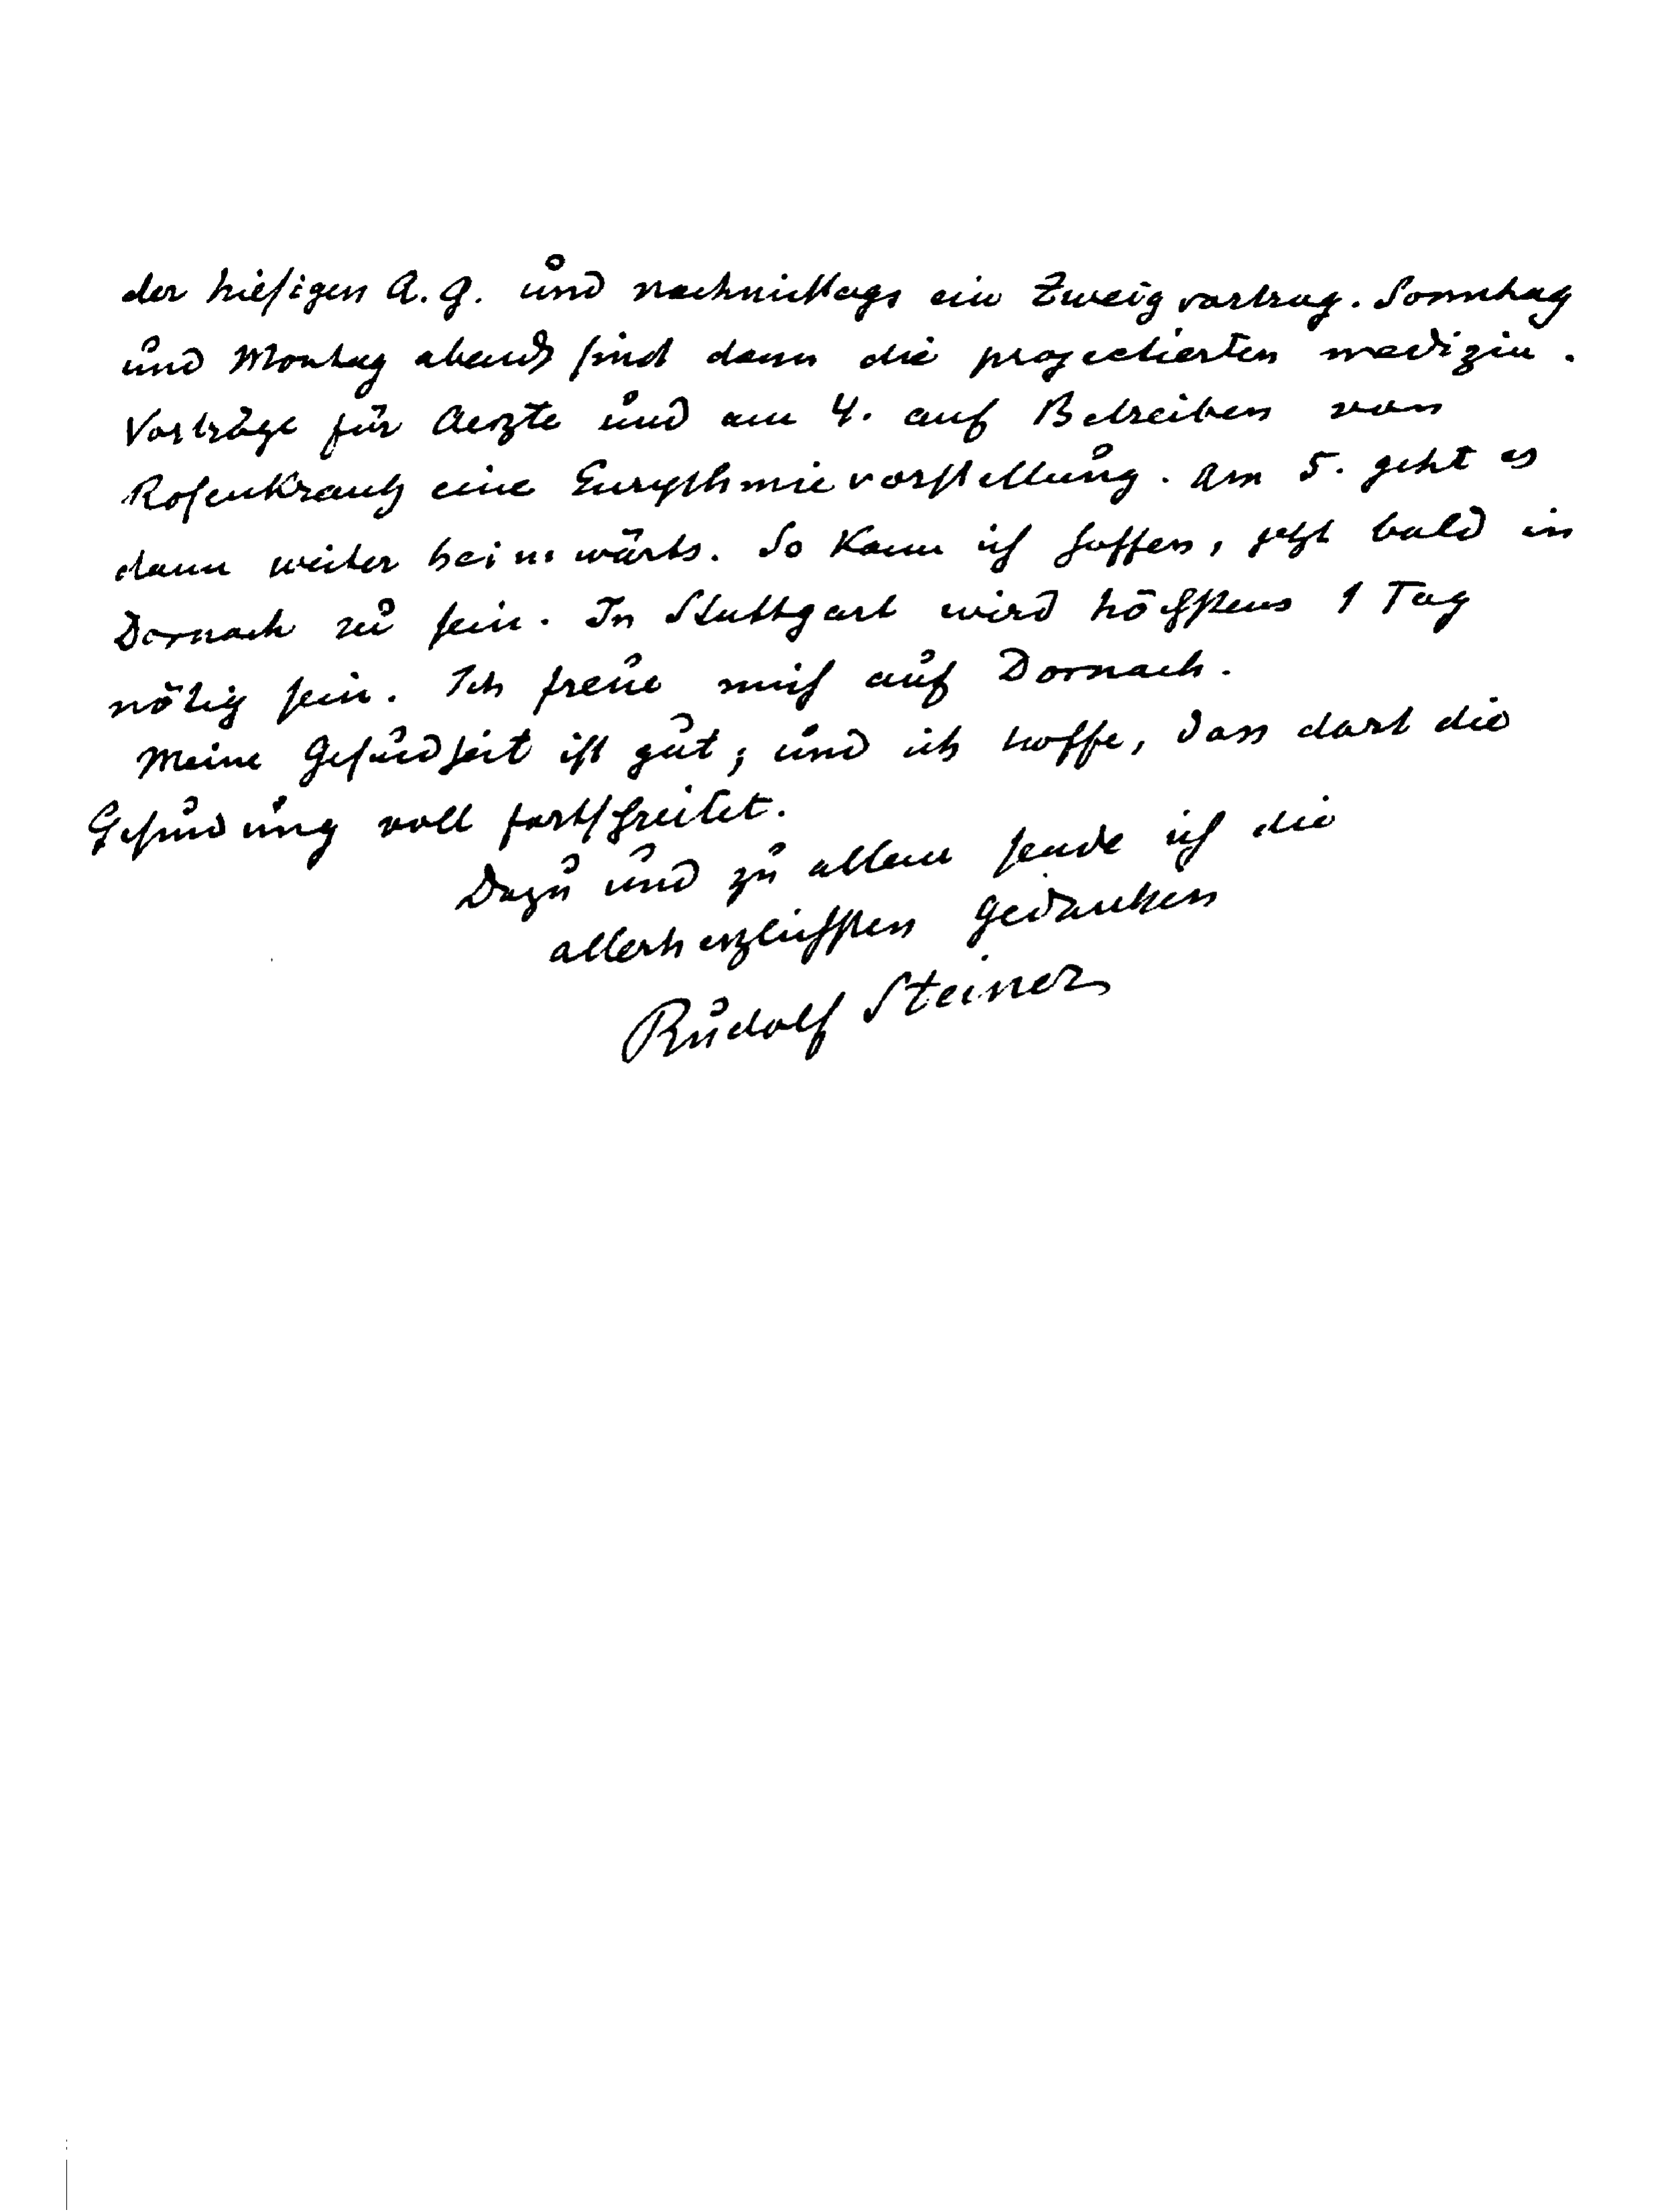 der hiesigen A. G. und nachmittags ein Zweigvortrag. Sonntag
und Montag abends sind dann die projectierten medizin.
Vorträge für Aerzte und am 4. auf Betreiben von
Rosenkrantz eine Eurythmievorstellung. Am 5. geht es
dann weiter heimwärts. So kann ich hoffen, jetzt bald in
Dornach zu sein. In Stuttgart wird höchstens 1 Tag
nötig sein. Ich freue mich auf Dornach.
Meine Gesundheit ist gut; und ich hoffe, dass dort die
Gesundung voll fortschreitet.
Dazu und zu allem sende ich die
allerherzlichsten Gedanken
Rudolf Steiner